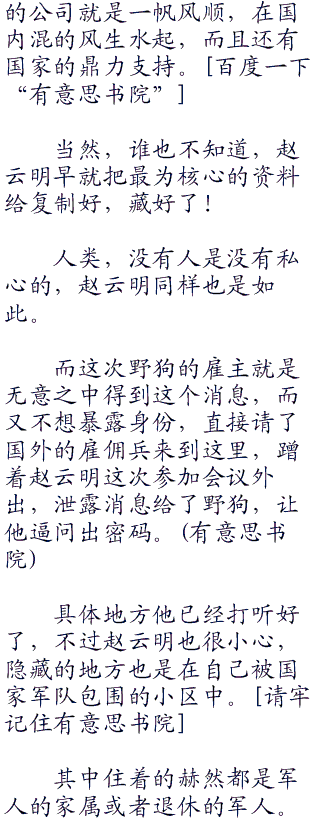 的公司就是一帆风顺，在国
内混的风生水起，而且还有
国家的鼎力支持。[百度一下
“有意思书院”]
当然，谁也不知道，赵
云明早就把最为核心的资料
给复制好，藏好了！
人类，没有人是没有私
心的，赵云明同样也是如
此。
而这次野狗的雇主就是
无意之中得到这个消息，而
又不想暴露身份，直接请了
国外的雇佣兵来到这里，蹭
着赵云明这次参加会议外
出，泄露消息给了野狗，让
他逼问出密码。(有意思书
院)
具体地方他已经打听好
了，不过赵云明也很小心，
隐藏的地方也是在自己被国
家军队包围的小区中。[请牢
记住有意思书院]
其中住着的赫然都是军
人的家属或者退休的军人。